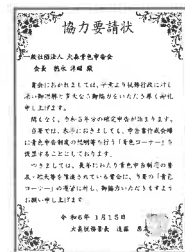 協力要請状
一般社団法人 大森青色申告会
会長
貴会におかれましては、平素より税務行政に対し
深い御理解と多大なる御協力をいただき厚く御礼
申し上げます。
間もなく、令和5年分の確定申告が始まります。
当署では、本年におきましても、申告書作成会場
に青色申告制度の説明等を行う「青色コーナー」を
設置することにしております。
つきましては、長年にわたり青色申告制度の普
及・拡大等を推進されている貴会に、当署の「青色
コーナー」の運営に対し、御協力いただきますよう
お願い申し上げます。
令和6年1月15日
大森税務署長 遠藤